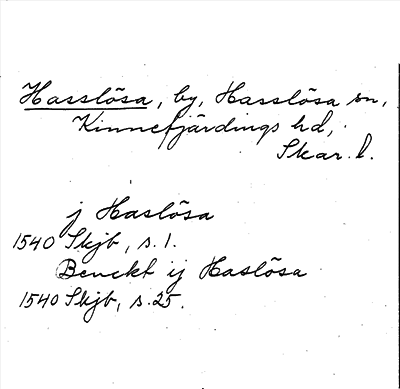 Hasslösa, by, Hasslösa sn,
Kinnefjärdings hd,
Skar. l.
j Haslösa
1540 Skjb, s. 1.
Benckt ij Haslösa
1540 Skjb, s. 25.